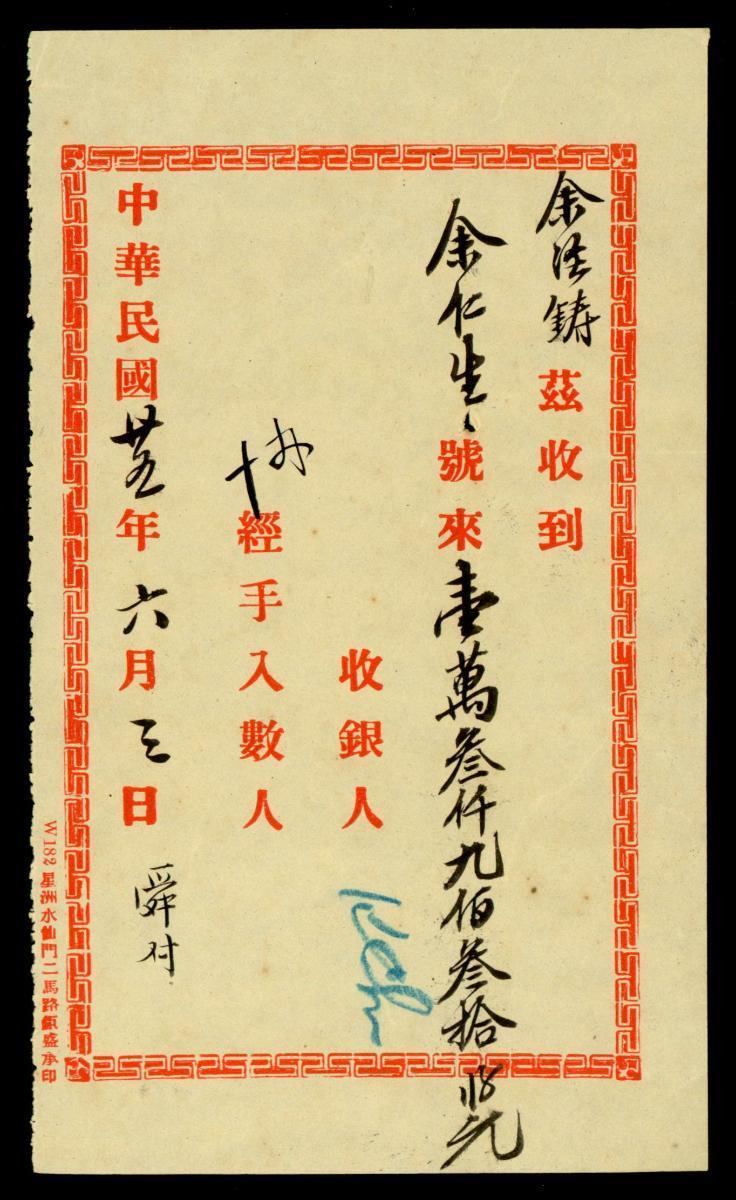 余經鑄茲收到
余仁生號來壹萬叁仟九佰叁拾元
收銀人
經手入數人
中華民國廿五年六月三日 舜付
W182 星洲水仙門二馬路盛承印